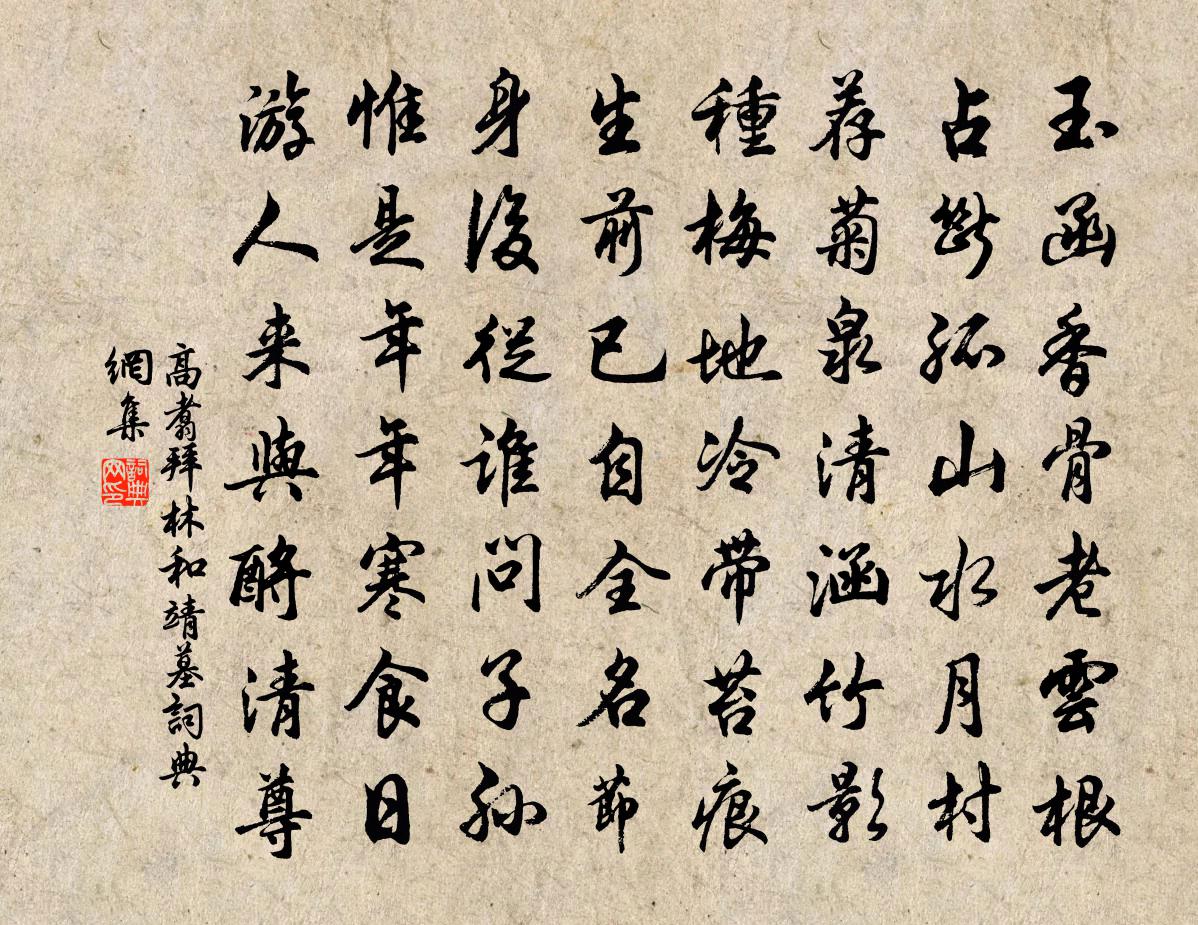 玉函香骨老雲根
占斷孤山水月村
荐菊泉清涵竹影
種梅地冷帶苔痕
生前已自全名節
身後從誰問子孫
惟是年年寒食日
游人来與酹清尊
高翥拜林和靖墓詞典
網集
詞典
网印